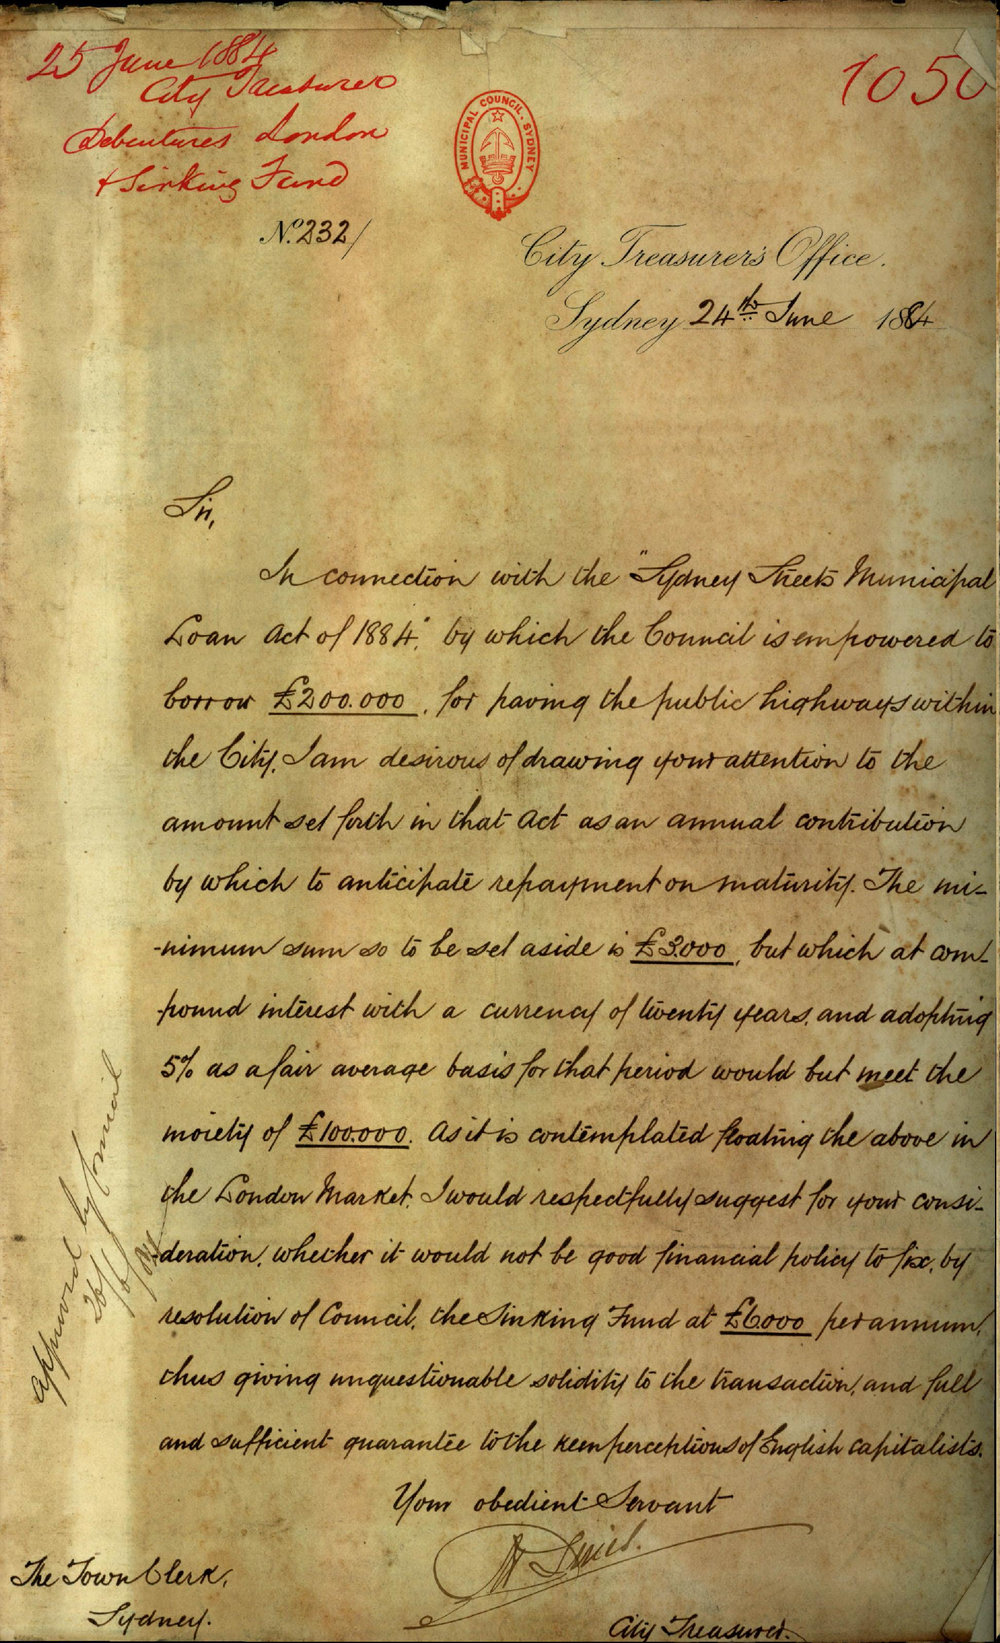 25 June 1884
City Treasurer
Debentures London
& Sinking Fund
1050
MUNICIPAL COUNCIL. SYDNEY
No. 232/
City Treasurer's Office.
Sydney 24th June 1884
Sir,
In connection with the "Sydney Streets Municipal
Loan Act of 1884", by which the Council is empowered to
borrow £200.000, for paving the public highways within
the City, I am desirous of drawing your attention to the
amount set forth in that Act as an annual contribution
by which to anticipate repayment on maturity. The mi-
-nimum sum so to be set aside is £3.000, but which at com-
-pound interest with a currency of twenty years, and adopting
5% as a fair average basis for that period would but meet the
moiety of £100.000. As it is contemplated floating the above in
the London Market, I would respectfully suggest for your consi-
-deration, whether it would not be good financial policy to fix, by
resolution of Council, the Sinking Fund at £6.000 per annum,
thus giving unquestionable solidity to the transaction, and full
and sufficient guarantee to the keen perceptions of English capitalists.
Your obedient Servant
City Treasurer.
The Town Clerk,
Sydney.
approved by
26/6/84